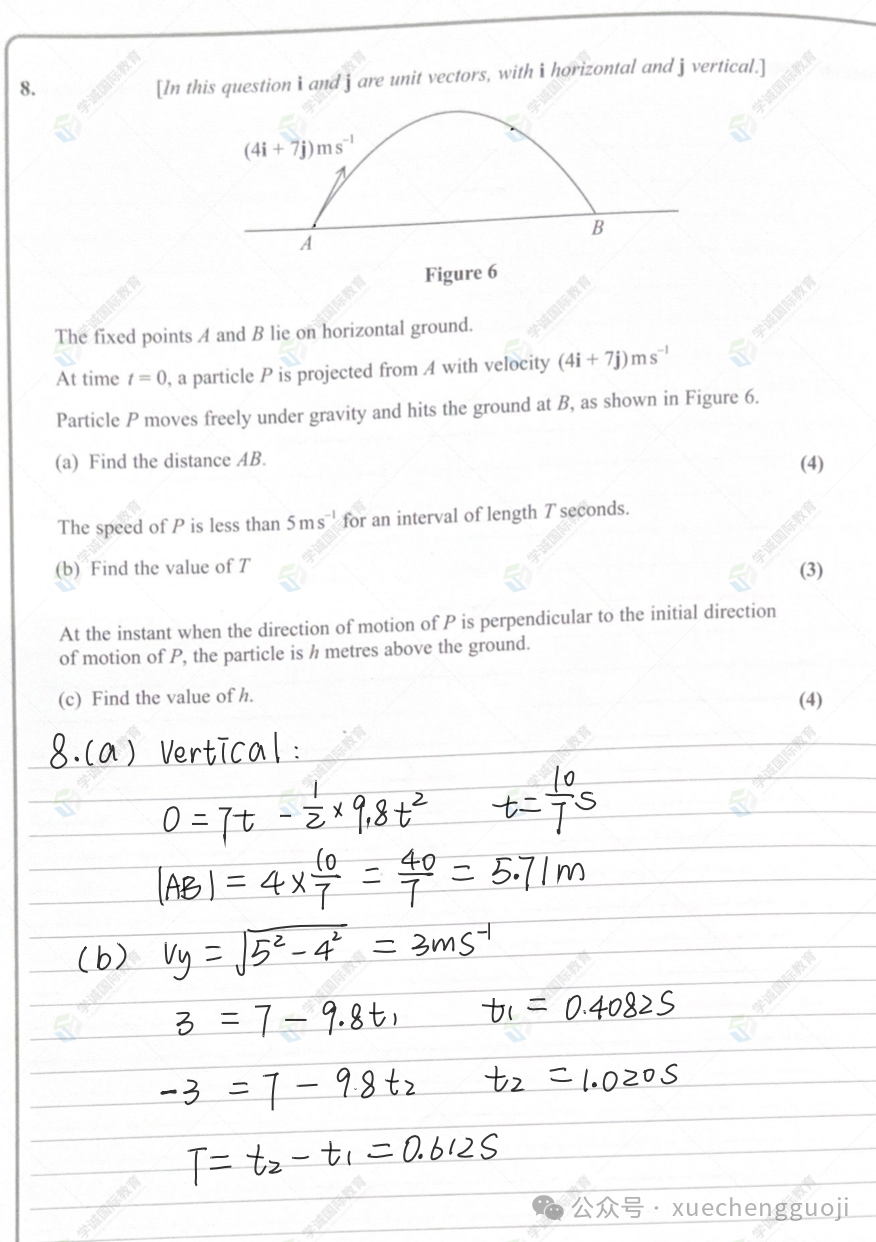 8.
[In this question i and j are unit vectors, with i horizontal and j vertical.]
(4i + 7j) m s⁻¹
A
B
Figure 6
The fixed points A and B lie on horizontal ground.
At time t = 0, a particle P is projected from A with velocity (4i + 7j) m s⁻¹
Particle P moves freely under gravity and hits the ground at B, as shown in Figure 6.
(a) Find the distance AB.
(4)
The speed of P is less than 5 m s⁻¹ for an interval of length T seconds.
(b) Find the value of T
(3)
At the instant when the direction of motion of P is perpendicular to the initial direction
of motion of P, the particle is h metres above the ground.
(c) Find the value of h.
(4)
8.(a) Vertical:
0 = 7t - 1/2 × 9.8t² t = 10/7 s
|AB| = 4 × 10/7 = 40/7 = 5.71m
(b) Vy = √(5² - 4²) = 3ms⁻¹
3 = 7 - 9.8t₁ t₁ = 0.4082s
-3 = 7 - 9.8t₂ t₂ = 1.020s
T = t₂ - t₁ = 0.612s
公众号 · xuechengguoji
学诚国际教育